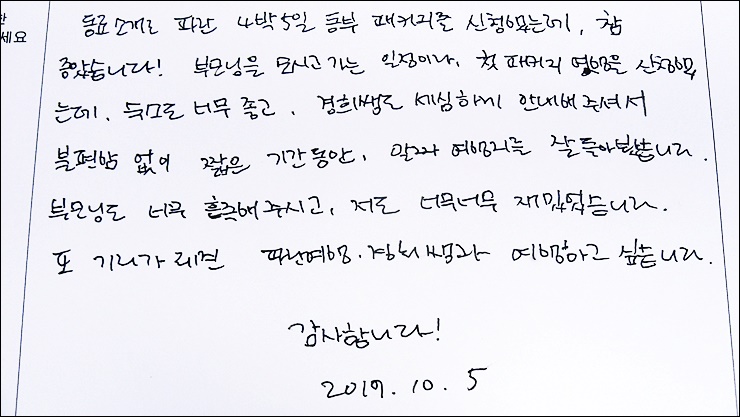 한
세요
동료소개로 파란 4박5일 동부 패키지를 신청했는데, 참
좋았습니다! 부모님을 모시고 가는 일정이라, 첫 패키지 여행을 신청했
는데, 숙소도 너무 좋고, 경희쌤도 세심하게 안내해주셔서
불편함 없이 짧은 기간동안, 알짜 여행지를 잘 돌아보았습니다.
부모님도 너무 흡족해주시고, 저도 너무너무 재밌었습니다.
또 기회가 되면 파란여행·경희쌤과 여행하고 싶습니다.
감사합니다!
2019. 10. 5